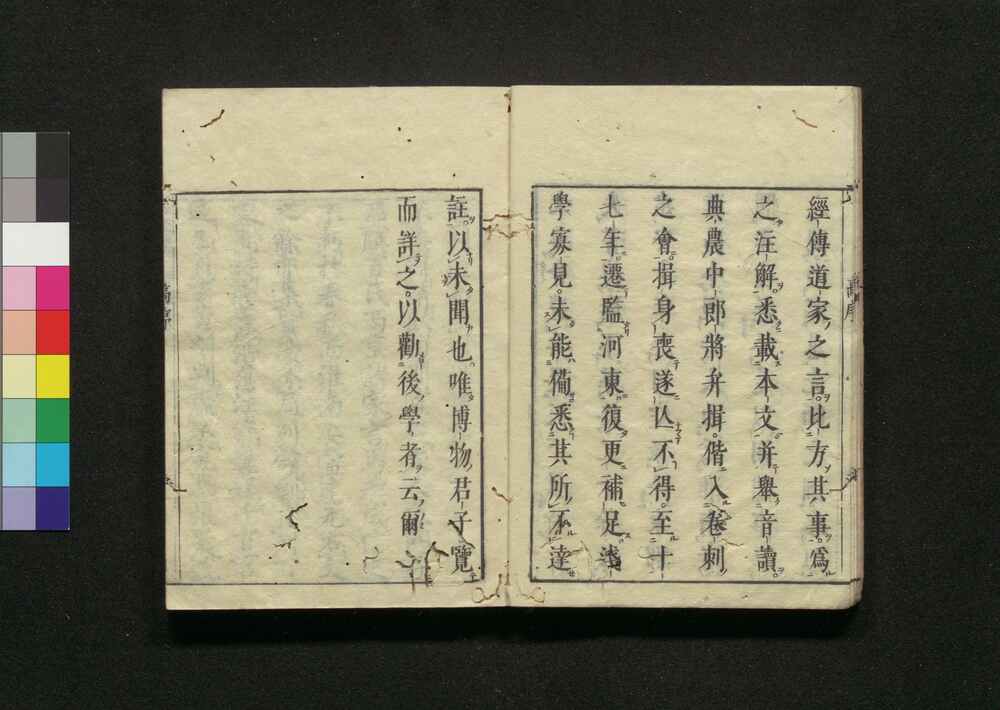 經傳道家之言比方其事爲
之注解悉載本文并舉音讀
典農中郎將弁揖偕八卷刺
之會揖身喪遂亾不得至十
七年遷監河東復更補足淺
學寡見未能僃悉其所不達
註以未聞也唯博物君子覽
而詳之以勸後學者云爾